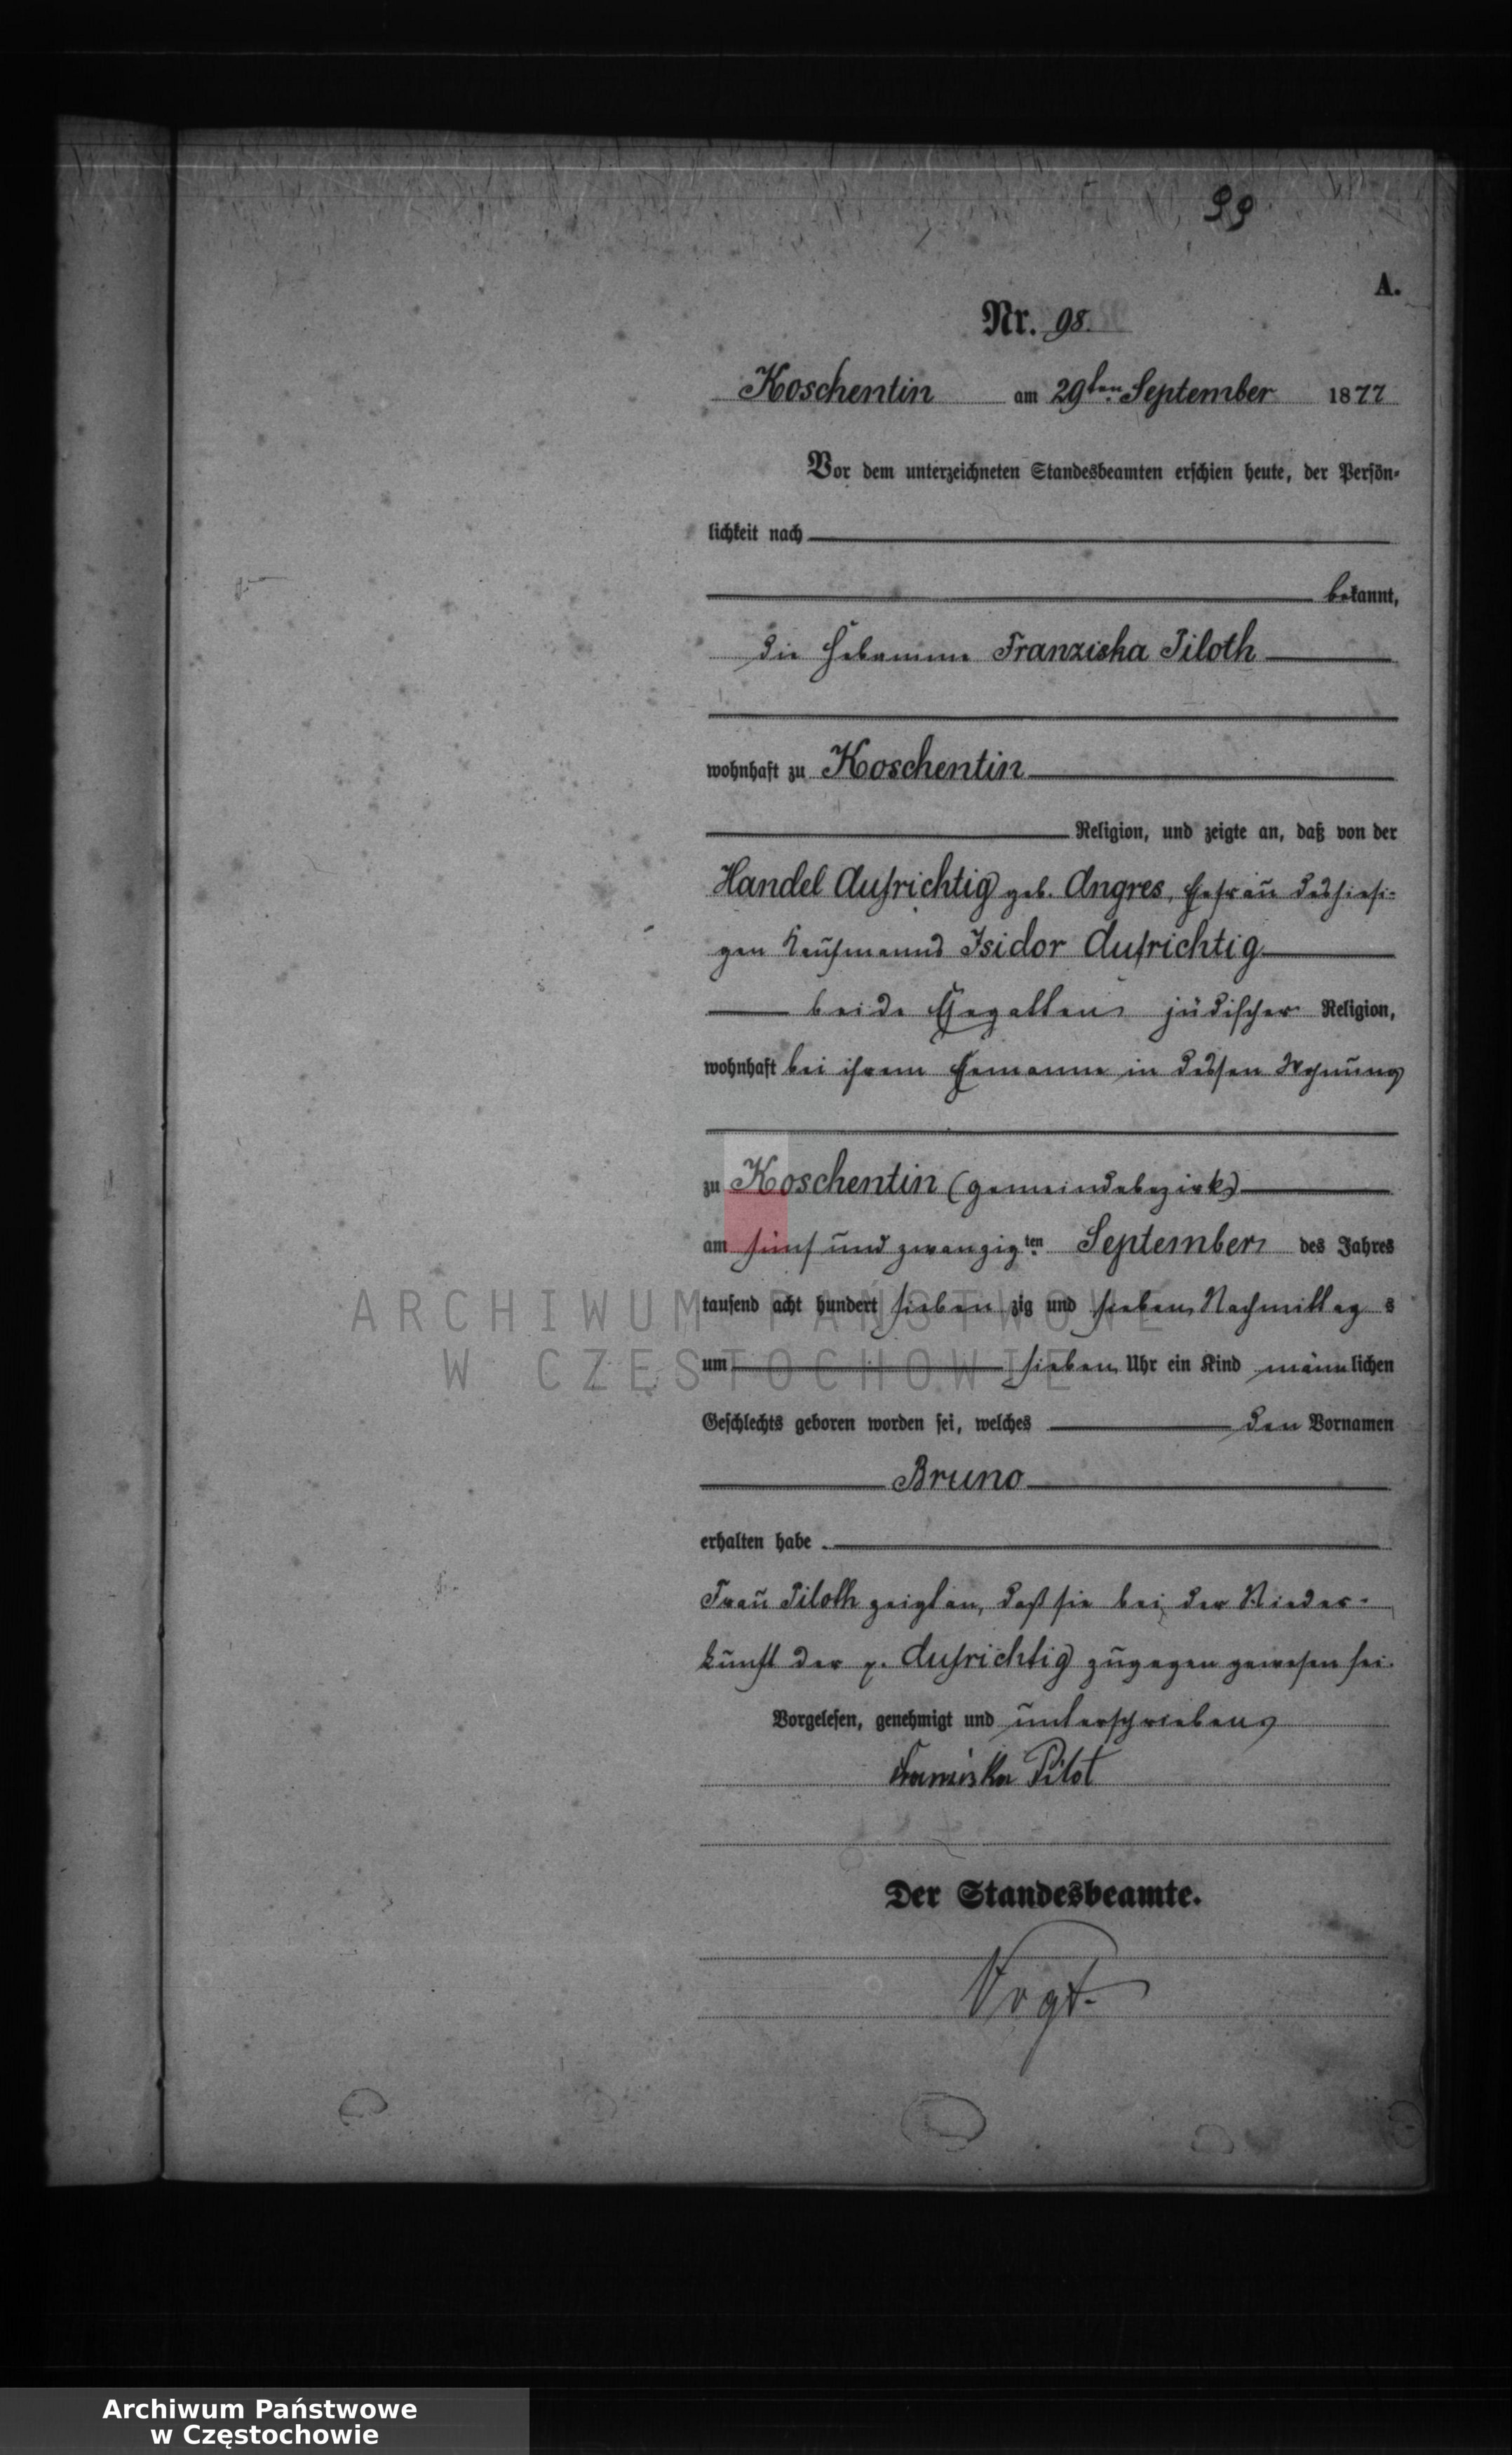 99
A.
Nr. 98.
Koschentin am 29ten September 1877
Vor dem unterzeichneten Standesbeamten erschien heute, der Persön-
lichkeit nach
bekannt,
die Hebamme Franziska Piloth
wohnhaft zu Koschentin
Religion, und zeigte an, daß von der
Handel Aufrichtig geb. Angres, Ehefrau des hiesi-
gen Kaufmanns Isidor Aufrichtig
beide Ehegatten jüdischer Religion,
wohnhaft bei ihrem Ehemanne in dessen Wohnung
zu Koschentin (Gemeindebezirk)
am fünf und zwanzigten September des Jahres
tausend acht hundert sieben zig und sieben Nachmittag s
um sieben Uhr ein Kind männlichen
Geschlechts geboren worden sei, welches den Vornamen
Bruno
erhalten habe.
Frau Piloth zeigt an, daß sie bei der Nieder-
kunft der p. Aufrichtig zugegen gewesen sei.
Vorgelesen, genehmigt und unterschrieben
Franziska Pilot
Der Standesbeamte.
Vogt.
ARCHIWUM PAŃSTWOWE
W CZĘSTOCHOWIE
Archiwum Państwowe
w Częstochowie